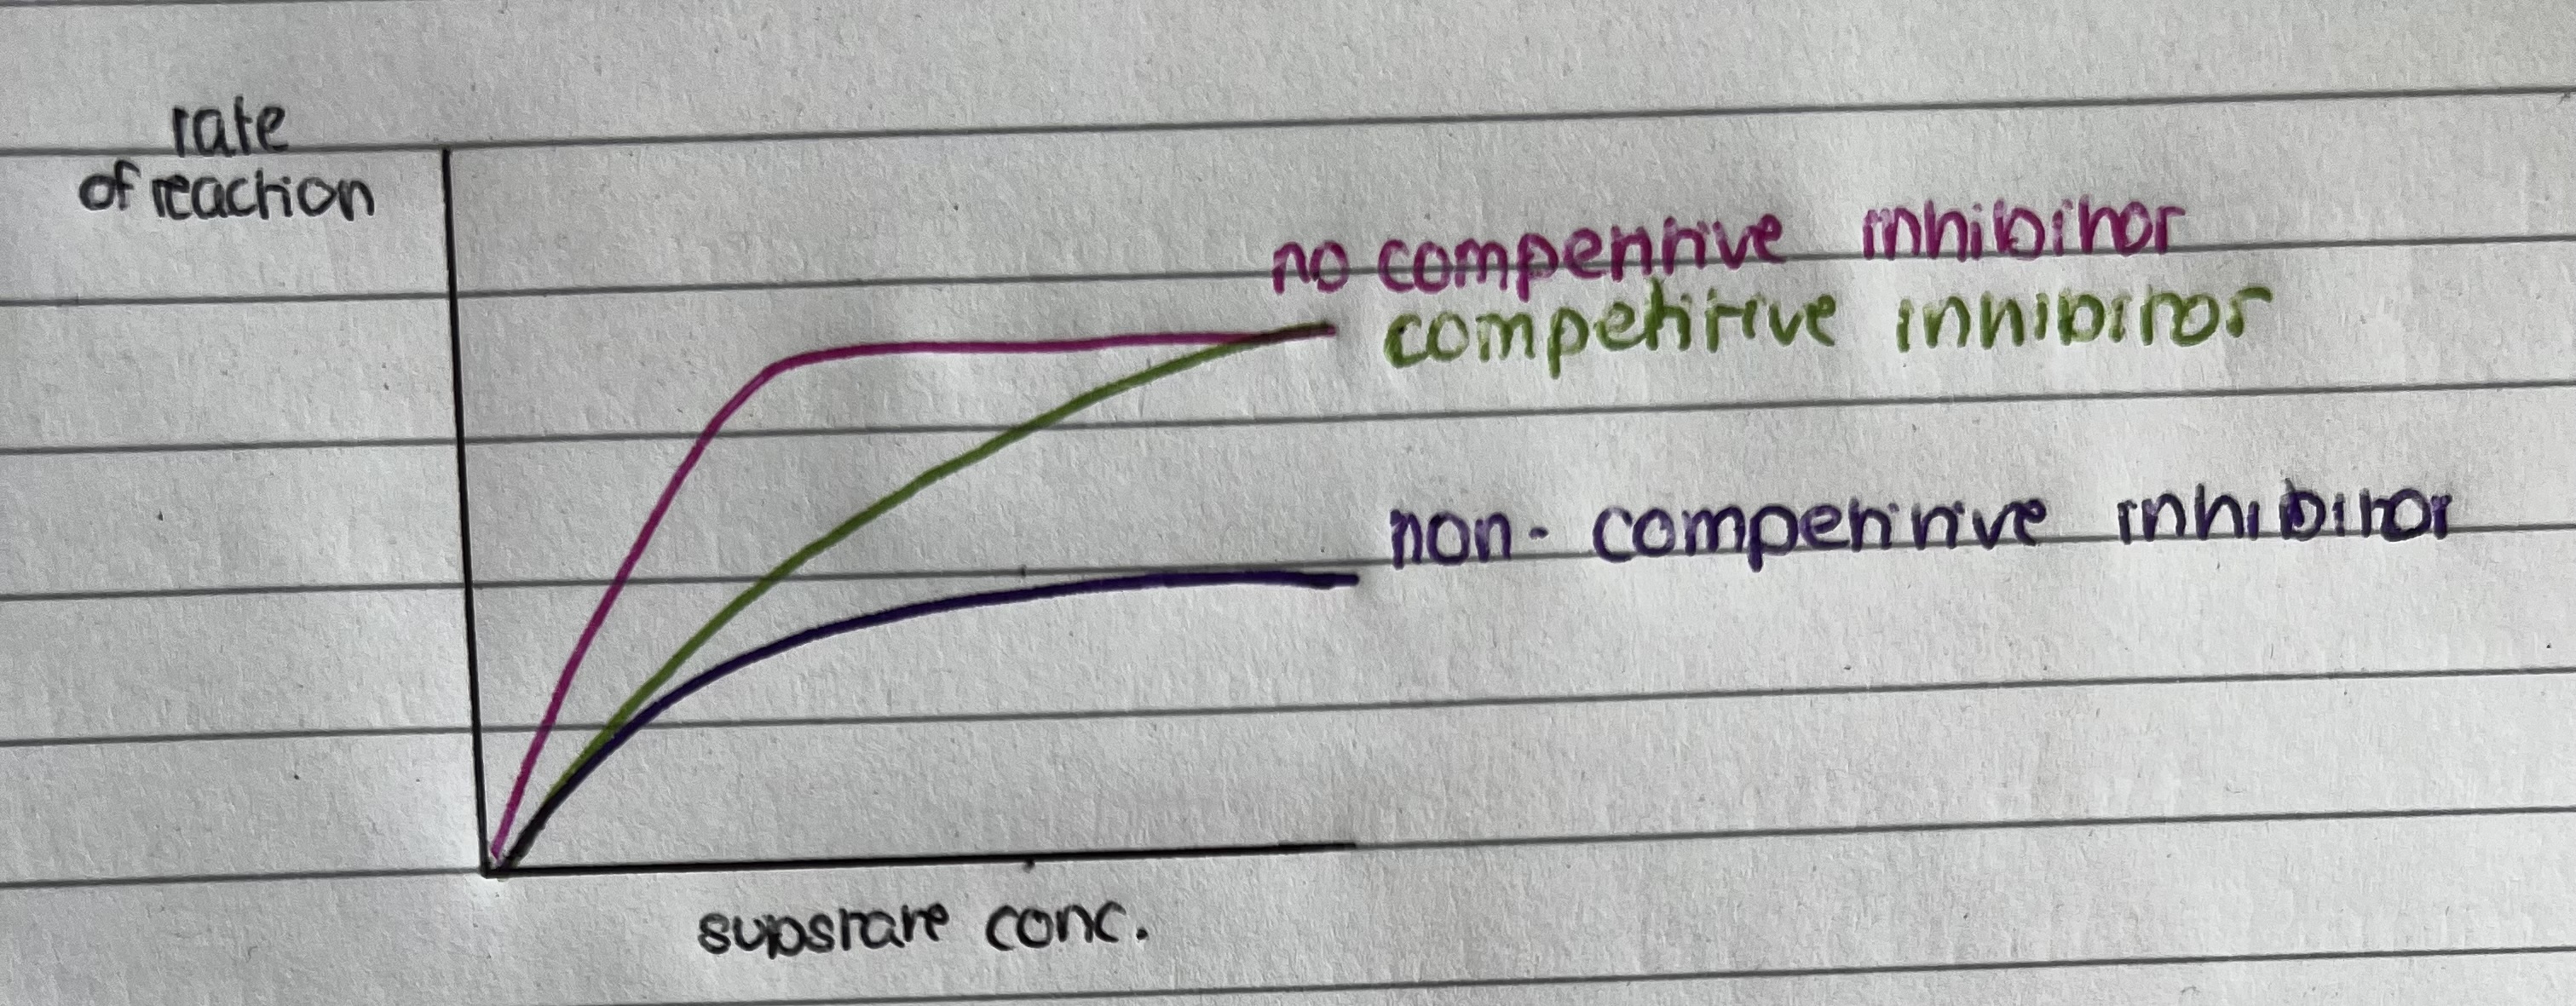 rate
of reaction
no competitive inhibitor
competitive inhibitor
non-competitive inhibitor
substrate conc.